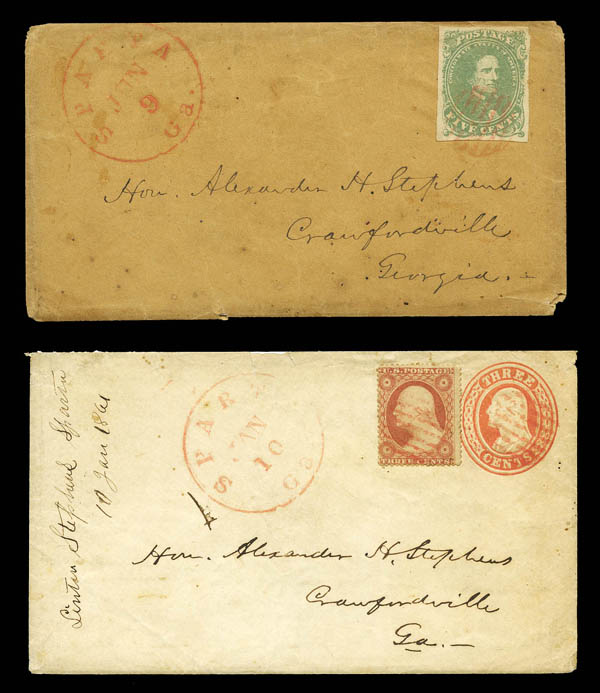 SPARTA
JUN
9
Ga.
POSTAGE
CONFEDERATE STATES OF AMERICA
FIVE CENTS
Hon. Alexander H. Stephens
Crawfordville
Georgia.
Linton Stephens Sparta
10 Jan 1861
SPAR
JAN
10
Ga
U.S. POSTAGE
THREE CENTS
THREE
CENTS
Hon. Alexander H. Stephens
Crawfordville
Ga.